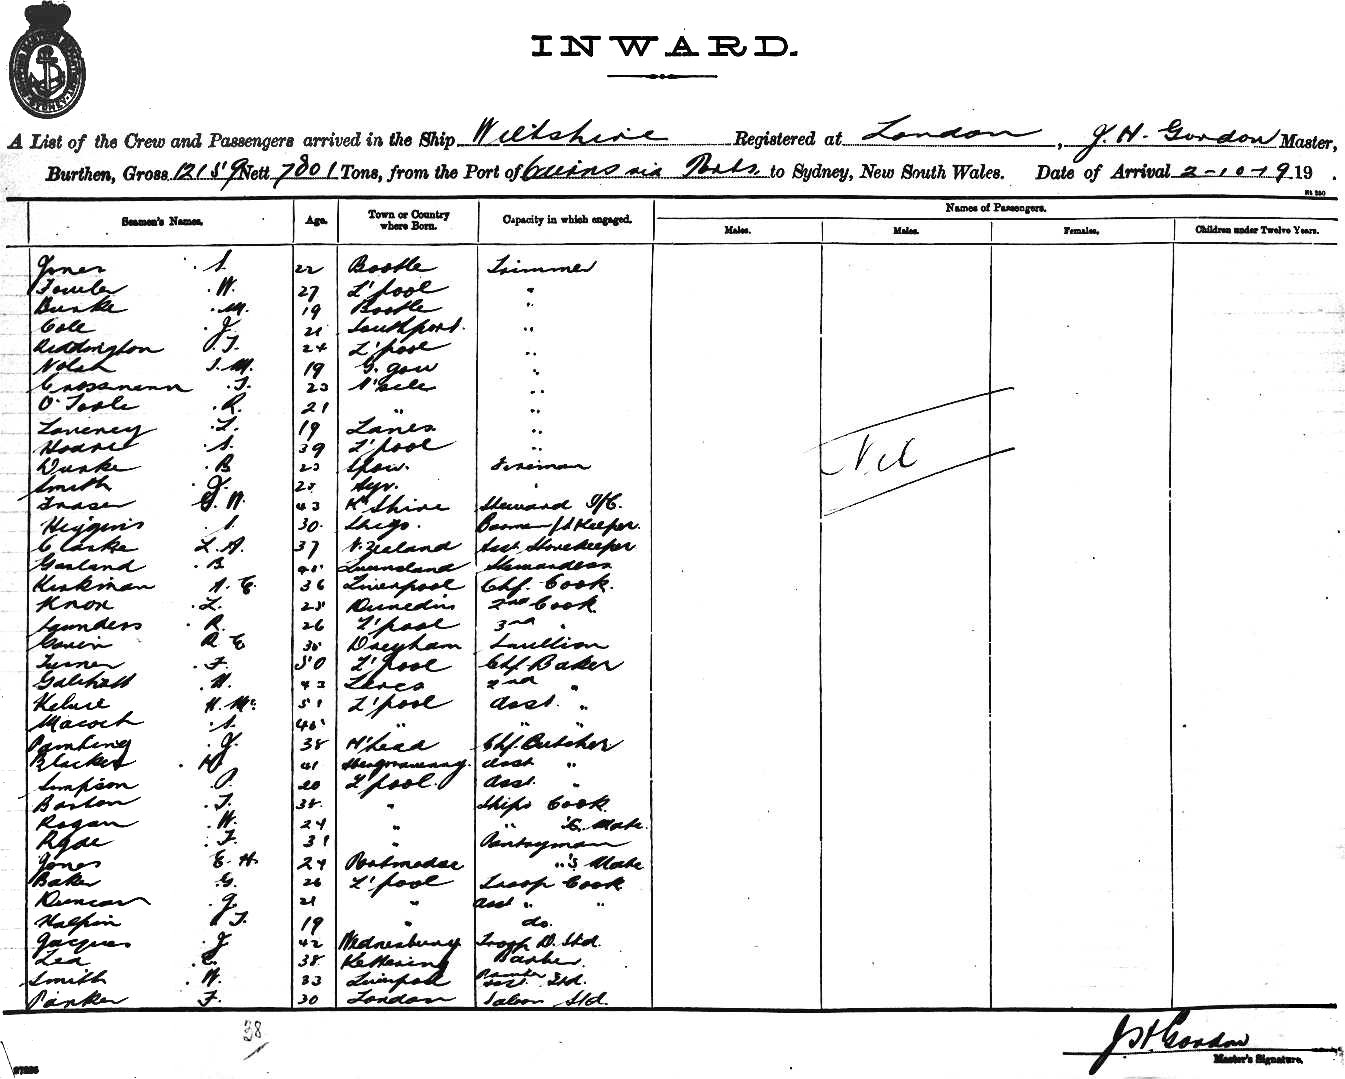 INWARD.
A List of the Crew and Passengers arrived in the Ship Wiltshire Registered at London, J. H. Gordon Master,
Burthen, Gross 12159 Nett 7801 Tons, from the Port of via Ports to Sydney, New South Wales. Date of Arrival 2-10-19 19 .
Names of Passengers.
Seamen's Names. Age. Town or Country where Born. Capacity in which engaged. Males. Males. Females. Children under Twelve Years.
Jones S. 22 Bootle Trimmer
Fowler W. 27 L'pool "
Burke M. 19 Bootle "
Cole J. 21 Southport. "
Reddington P. T. 24 L'pool "
Nolan J. M. 19 G. gow "
Crossmann T. 23 "
O'Toole R. 21 " "
Laveney L. 19 Lancs "
Hoare S. 39 L'pool "
Burke B 23 Fireman
Smith J. Ayr. "
Fraser G. W. 43 Shire Steward
Higgins S. 30. Sligo. Keeper.
Clarke L. A. 37 N. Zealand Asst. Storekeeper
Garland B Queensland Stewardess
Kirkman A. E. 36 Liverpool Chf. Cook.
Knox L. 25 Dunedin 2nd Cook
Saunders R. 26 L'pool 3rd "
R E Scullion
Turner F. 50 L'pool Chf. Baker
W. 43 Lancs 2nd "
H. Mc. 51 L'pool Asst. "
Macoch S. " " "
J. 38 B'head Chf. Butcher
Blacker H 41 Asst "
Simpson P. 20 L'pool. Asst. "
Barton T. 38. " Ships Cook
Rogan W. 24 " " 's Mate.
Ryde F. 31 " Pantryman
Jones E. H. 24 Portmadoc " 's Mate
Baker G. 26 L'pool Troop Cook
Duncan J. 21 " Asst " "
Halpin T. 19 " do.
Jacques J 42 Wednesbury Troop D. Std.
Lea C. 38 Kettering Barber.
Smith W. 33 Liverpool Std.
Parker F. 30 London Saloon Std.
Nil
38
J H Gordon
Master's Signature.